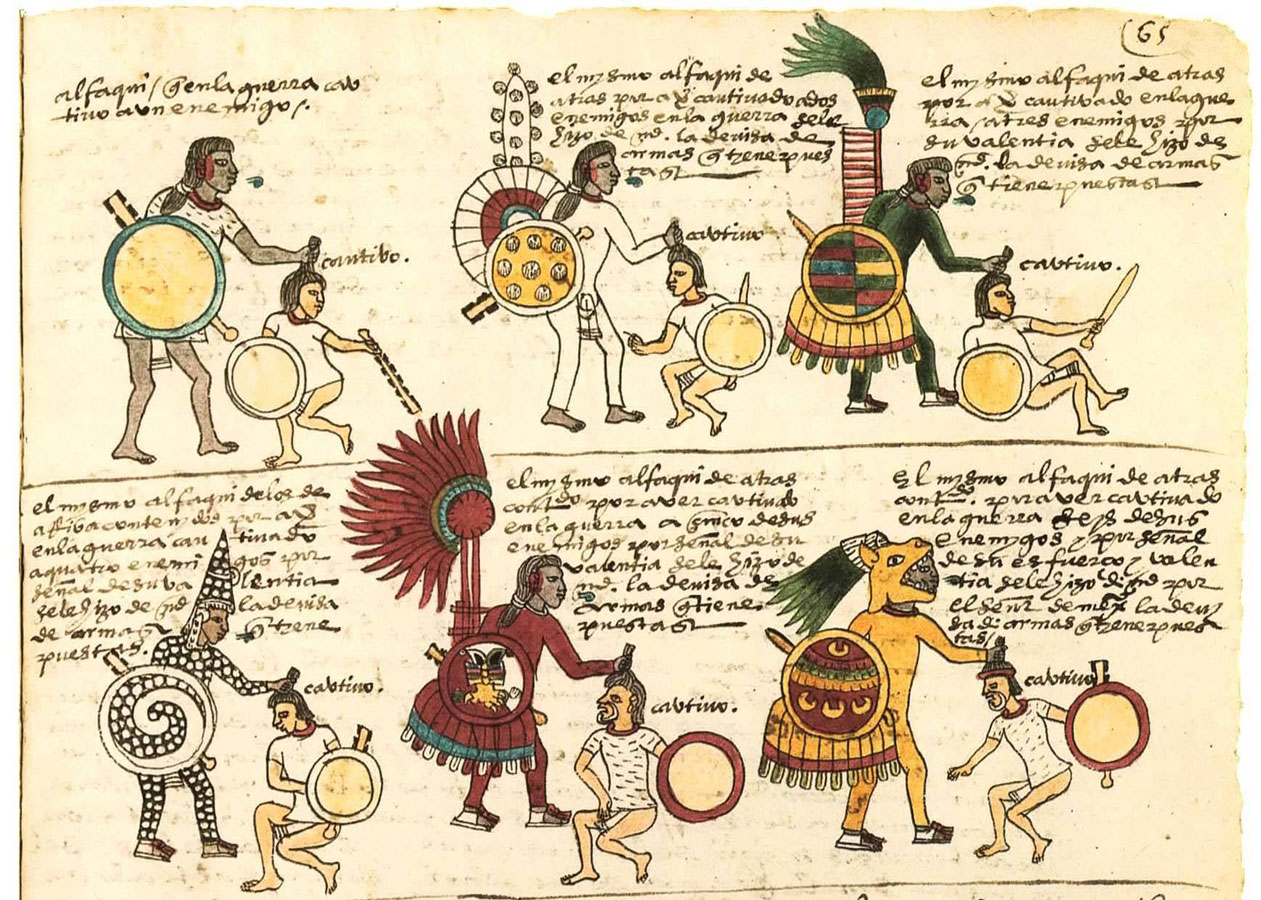 65
alfaqui / q̃ en la guerra cau
tivo a un enemigo /.
cautibo.
el mysmo alfaqui de
atras por a ṽ cautivado a dos
enemigos en la guerra sele
hizo de md. la devisa de
armas q̃ tiene pues
tas
cautivo
el mysmo alfaqui de atras
por a ṽ cautivado en la gue
rra / a tres enemigos por
su valentia sele hizo de
md. la devisa de armas
q̃ tiene puestas
cautivo.
el mysmo alfaqui de los de
arriba contenidos por
en la guerra cau tivado
a quatro enemi gos por
señal de su va lentia
sele hizo de md la devisa
de armas q̃ tiene
puestas.
cautivo.
el mysmo alfaqui de atras
contdo por aver cautivado
en la guerra a cinco de sus
enemigos por señal de su
valentia sele hizo de
md. la devisa de
armas q̃ tiene
puestas
cautivo.
El mysmo alfaqui de atras
contdo. por aver cautivado
en la guerra seys de sus
enemygos y por señal
de su esfuerço y valen
tia sele hizo de md por
el señor de mexco la devi
sa de armas q̃ tiene pues
tas /
cautivo